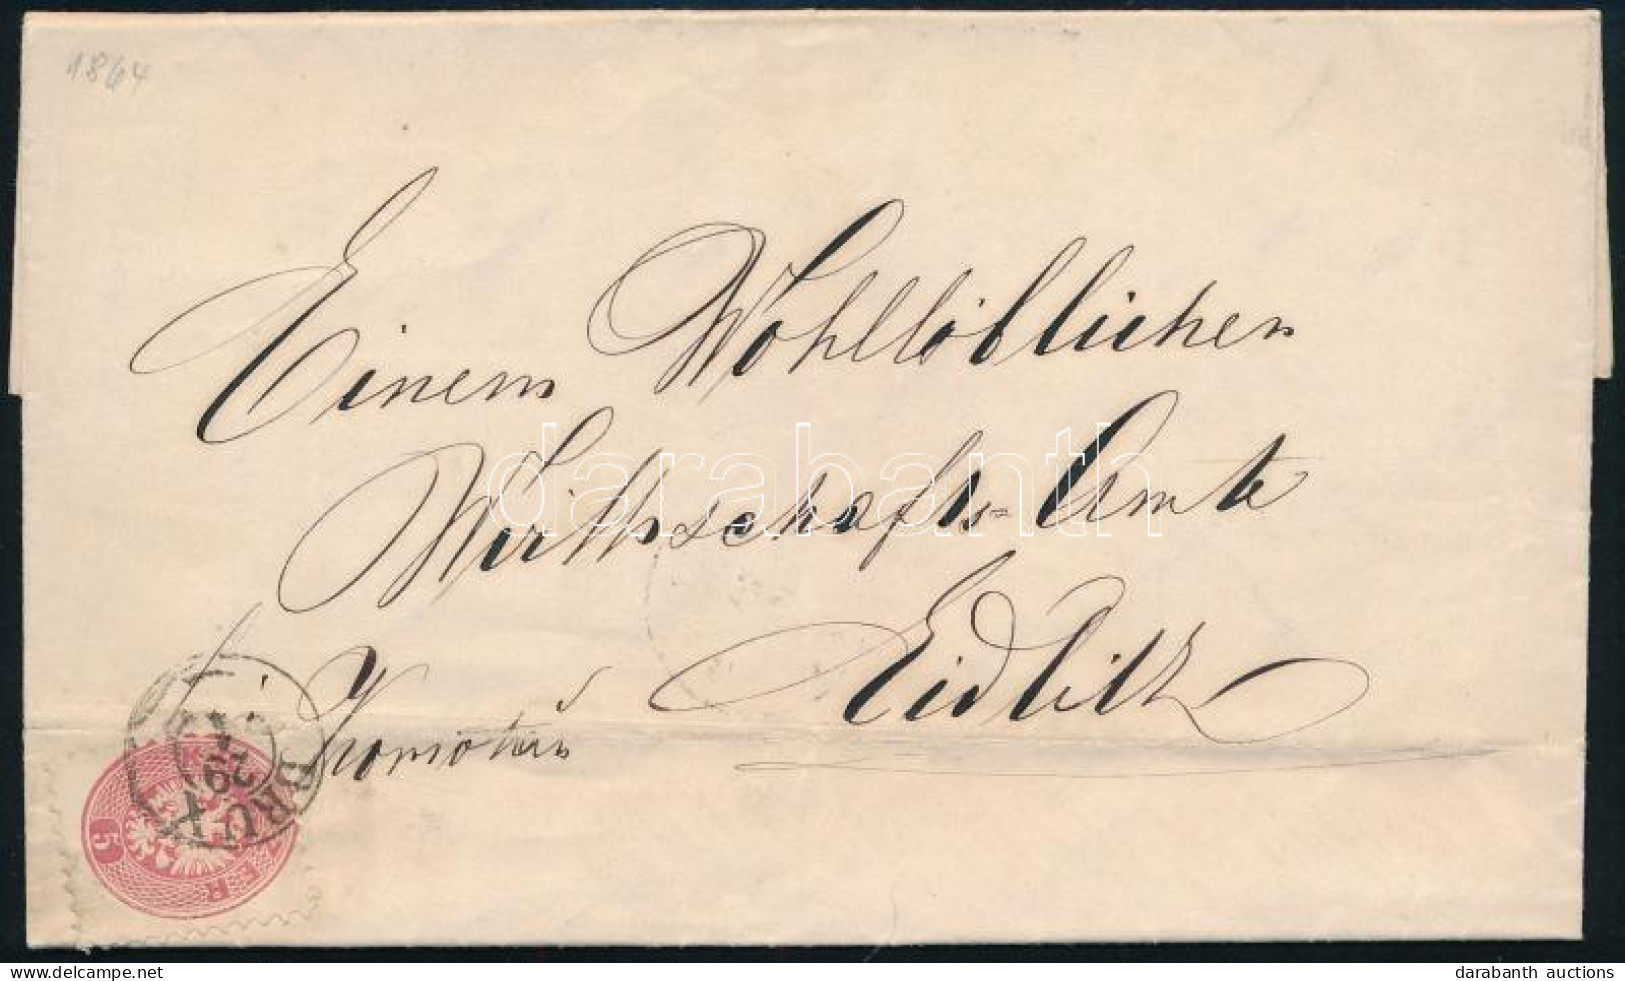 1864
Einem Wohllöblichen
Wirthschafts=Amte
Eidlitz
Komotau
5
KR
ER
BRÜX
29
4
darabanth
delcampe.net
darabanth auctions